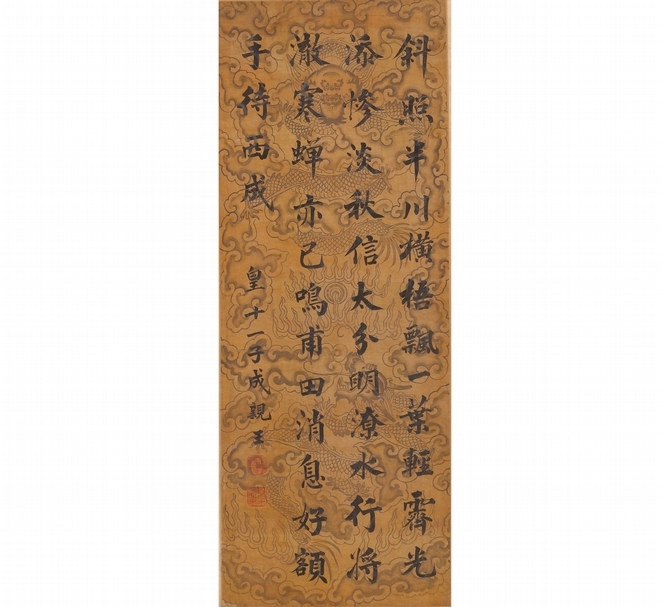 斜照半川橫梧飄一葉輕霽光
添慘淡秋信太分明潦水行將
澈寒蟬亦已鳴甫田消息好額
手待西成
皇十一子成親王